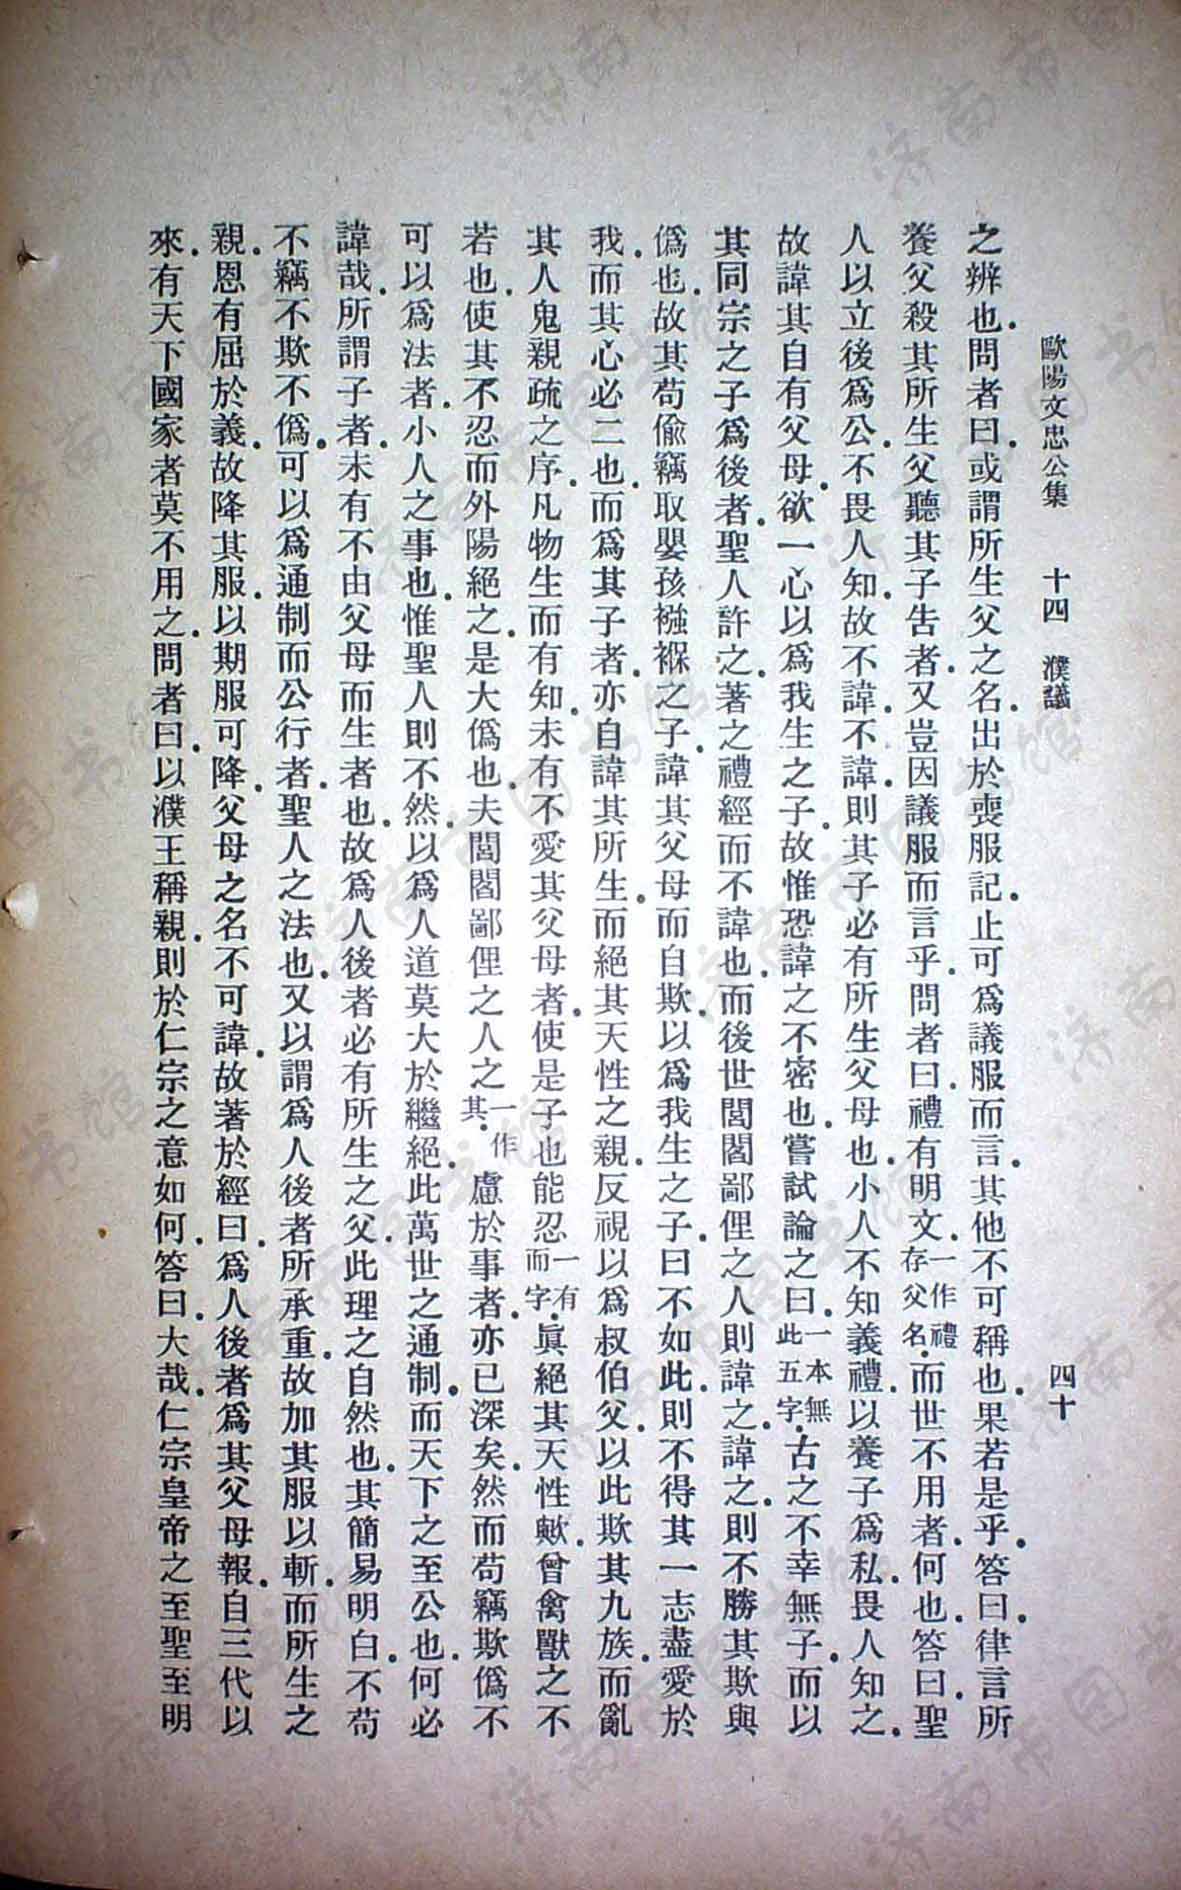 歐陽文忠公集　十四　濮議　四十
之辨也.問者曰.或謂所生父之名.出於喪服記.止可爲議服而言.其他不可稱也.果若是乎.答曰.律言所
養父殺其所生父聽其子告者.又豈因議服而言乎.問者曰.禮有明文.一作禮存父名.而世不用者.何也.答曰.聖
人以立後爲公.不畏人知.故不諱.不諱.則其子必有所生父母也.小人不知義禮.以養子爲私.畏人知之.
故諱其自有父母.欲一心以爲我生之子.故惟恐諱之不密也.嘗試論之曰.一本無此五字.古之不幸無子.而以
其同宗之子爲後者.聖人許之.著之禮經而不諱也.而後世閭閻鄙俚之人則諱之.諱之.則不勝其欺與
僞也.故其苟偸竊取嬰孩襁褓之子.諱其父母.而自欺.以爲我生之子.曰不如此.則不得其一志盡愛於
我.而其心必二也.而爲其子者.亦自諱其所生.而絕其天性之親.反視以爲叔伯父.以此欺其九族.而亂
其人鬼親疏之序.凡物生而有知.未有不愛其父母者.使是子也能忍一有而字.眞絕其天性歟.曾禽獸之不
若也.使其不忍而外陽絕之.是大僞也.夫閭閻鄙俚之人之一作其.慮於事者.亦已深矣.然而苟竊欺僞不
可以爲法者.小人之事也.惟聖人則不然.以爲人道莫大於繼絕.此萬世之通制.而天下之至公也.何必
諱哉.所謂子者.未有不由父母而生者也.故爲人後者必有所生之父.此理之自然也.其簡易明白.不苟
不竊不欺不僞.可以爲通制而公行者.聖人之法也.又以謂爲人後者所承重.故加其服以斬.而所生之
親.恩有屈於義.故降其服.以期服可降.父母之名不可諱.故著於經曰.爲人後者爲其父母報.自三代以
來.有天下國家者莫不用之.問者曰.以濮王稱親.則於仁宗之意如何.答曰.大哉.仁宗皇帝之至聖至明